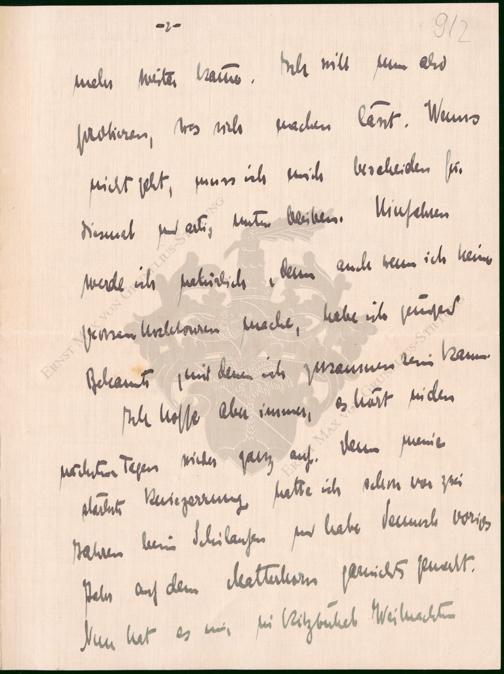 -2-
912
mehr weiter kann. Ich will nun also
probieren, was sich machen lässt. Wenns
nicht geht, muss ich mich bescheiden für
diesmal und artig unten bleiben. Hinfahren
werde ich natürlich, denn auch wenn ich keine
grossen Hochtouren mache, habe ich genügend
Bekannte, mit denen ich zusammen sein kann.
Ich hoffe aber immer, es hört in den
nächsten Tagen wieder ganz auf. Denn meine
stärkste Kniezerrung hatte ich schon vor zwei
Jahren beim Schilaufen und habe dennoch voriges
Jahr auf dem Matterhorn garnichts gemerkt.
Nun hat es mir in Kitzbühel Weihnachten
ERNST MAX VON GRUNELIUS-STIFTUNG
ERNST MAX VON GRUNELIUS-STIFTUNG